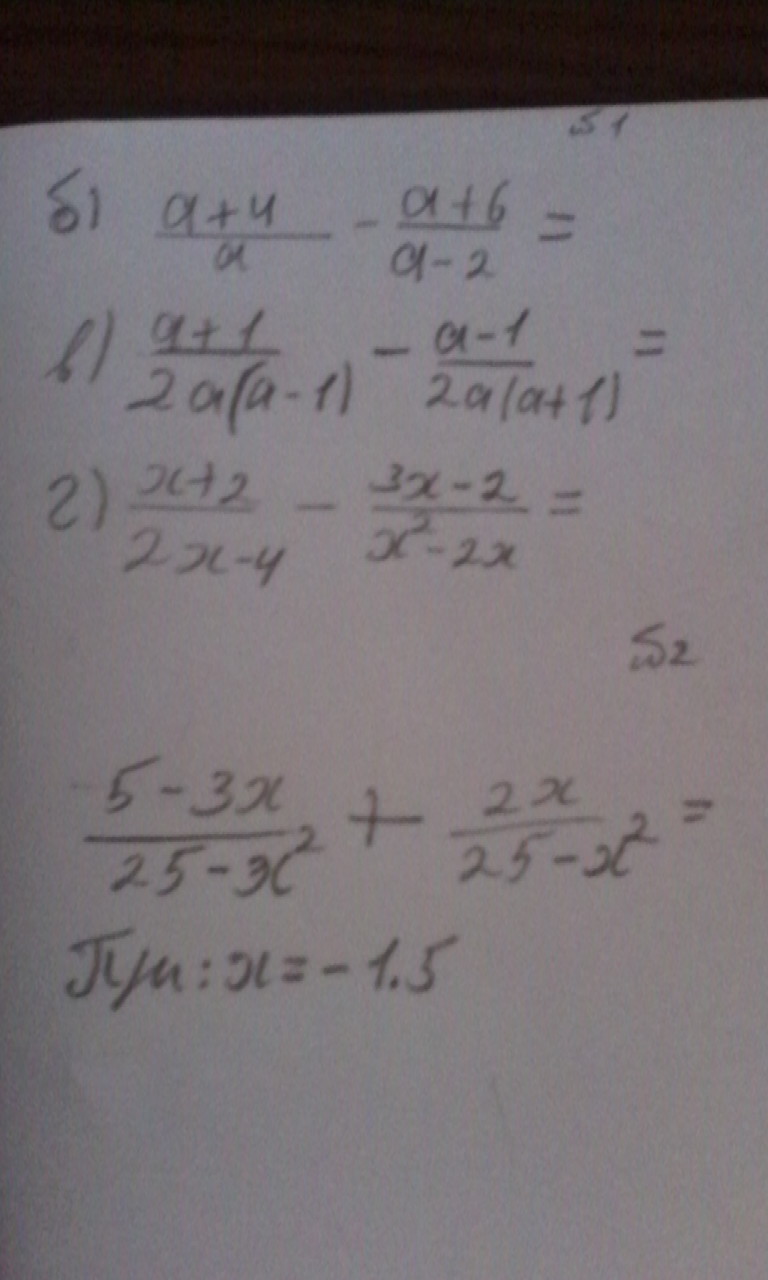 №1
б) (a+4)/a - (a+6)/(a-2) =
в) (a+1)/(2a(a-1)) - (a-1)/(2a(a+1)) =
г) (x+2)/(2x-4) - (3x-2)/(x²-2x) =
№2
(5-3x)/(25-x²) + 2x/(25-x²) =
При: x=-1.5